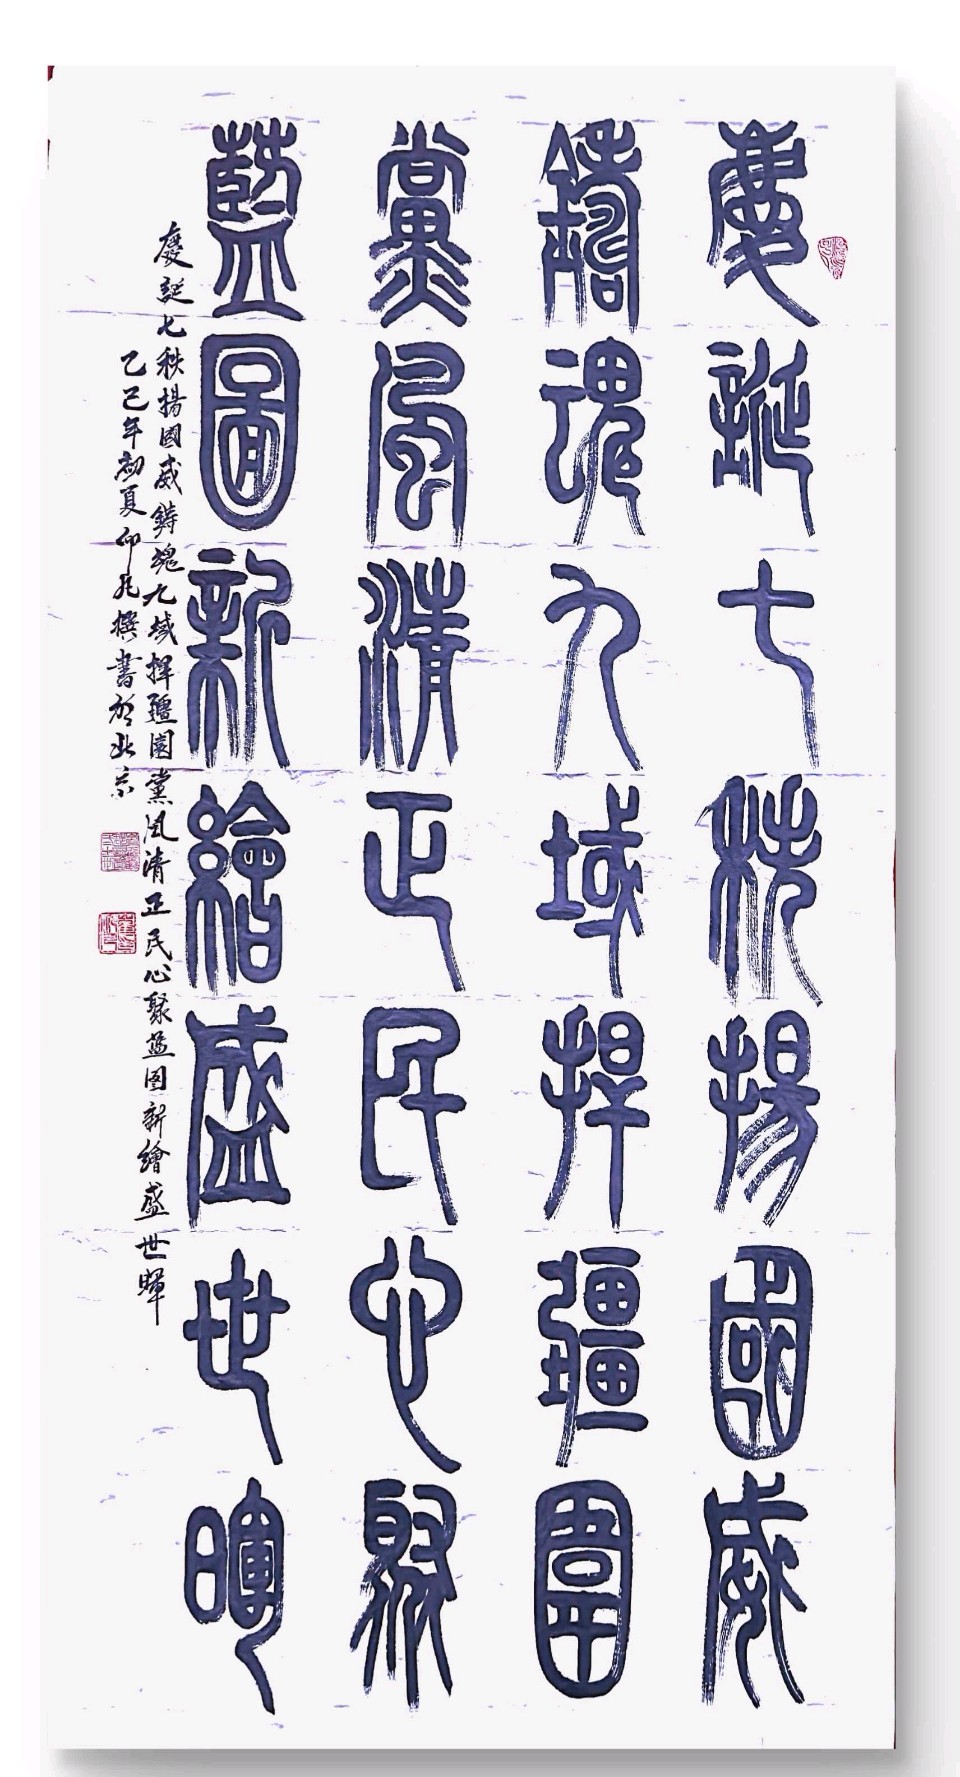 慶誕七秩揚國威
鑄魂九域捍疆圍
黨風清正民心聚
藍圖新繪盛世暉
慶誕七秩揚國威鑄魂九域捍疆圍黨風清正民心聚蓝图新繪盛世暉
乙巳年初夏撰書於北京